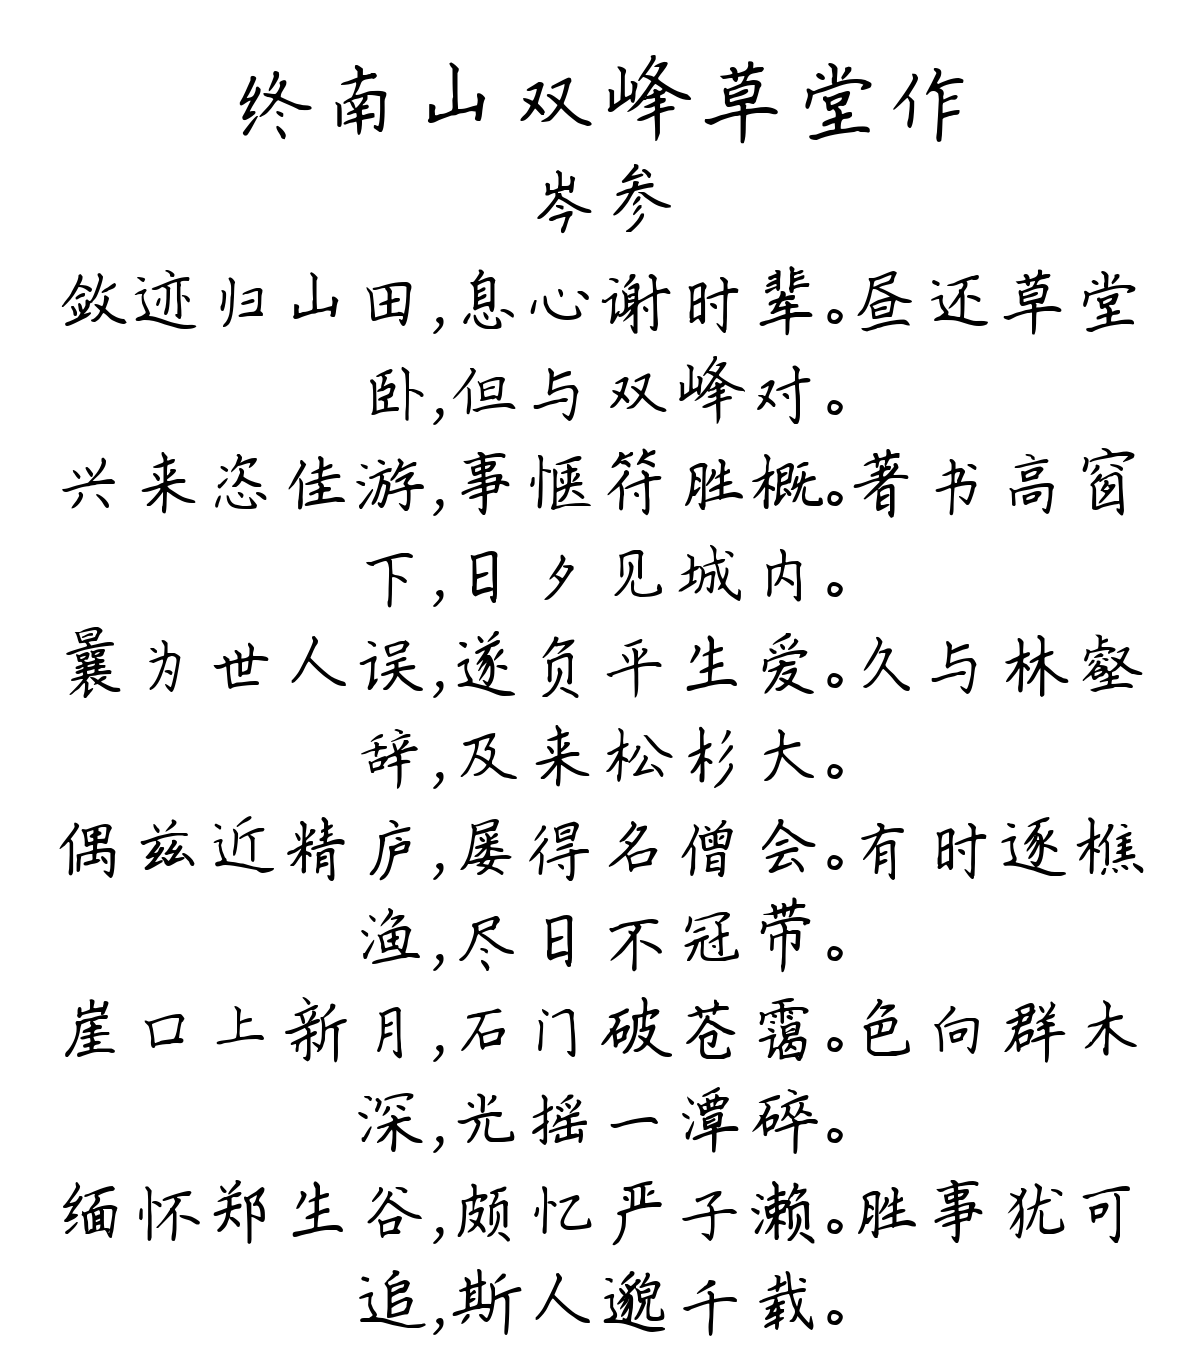 终南山双峰草堂作
岑参
敛迹归山田,息心谢时辈。昼还草堂
卧,但与双峰对。
兴来恣佳游,事惬符胜概。著书高窗
下,日夕见城内。
曩为世人误,遂负平生爱。久与林壑
辞,及来松杉大。
偶兹近精庐,屡得名僧会。有时逐樵
渔,尽日不冠带。
崖口上新月,石门破苍霭。色向群木
深,光摇一潭碎。
缅怀郑生谷,颇忆严子濑。胜事犹可
追,斯人邈千载。